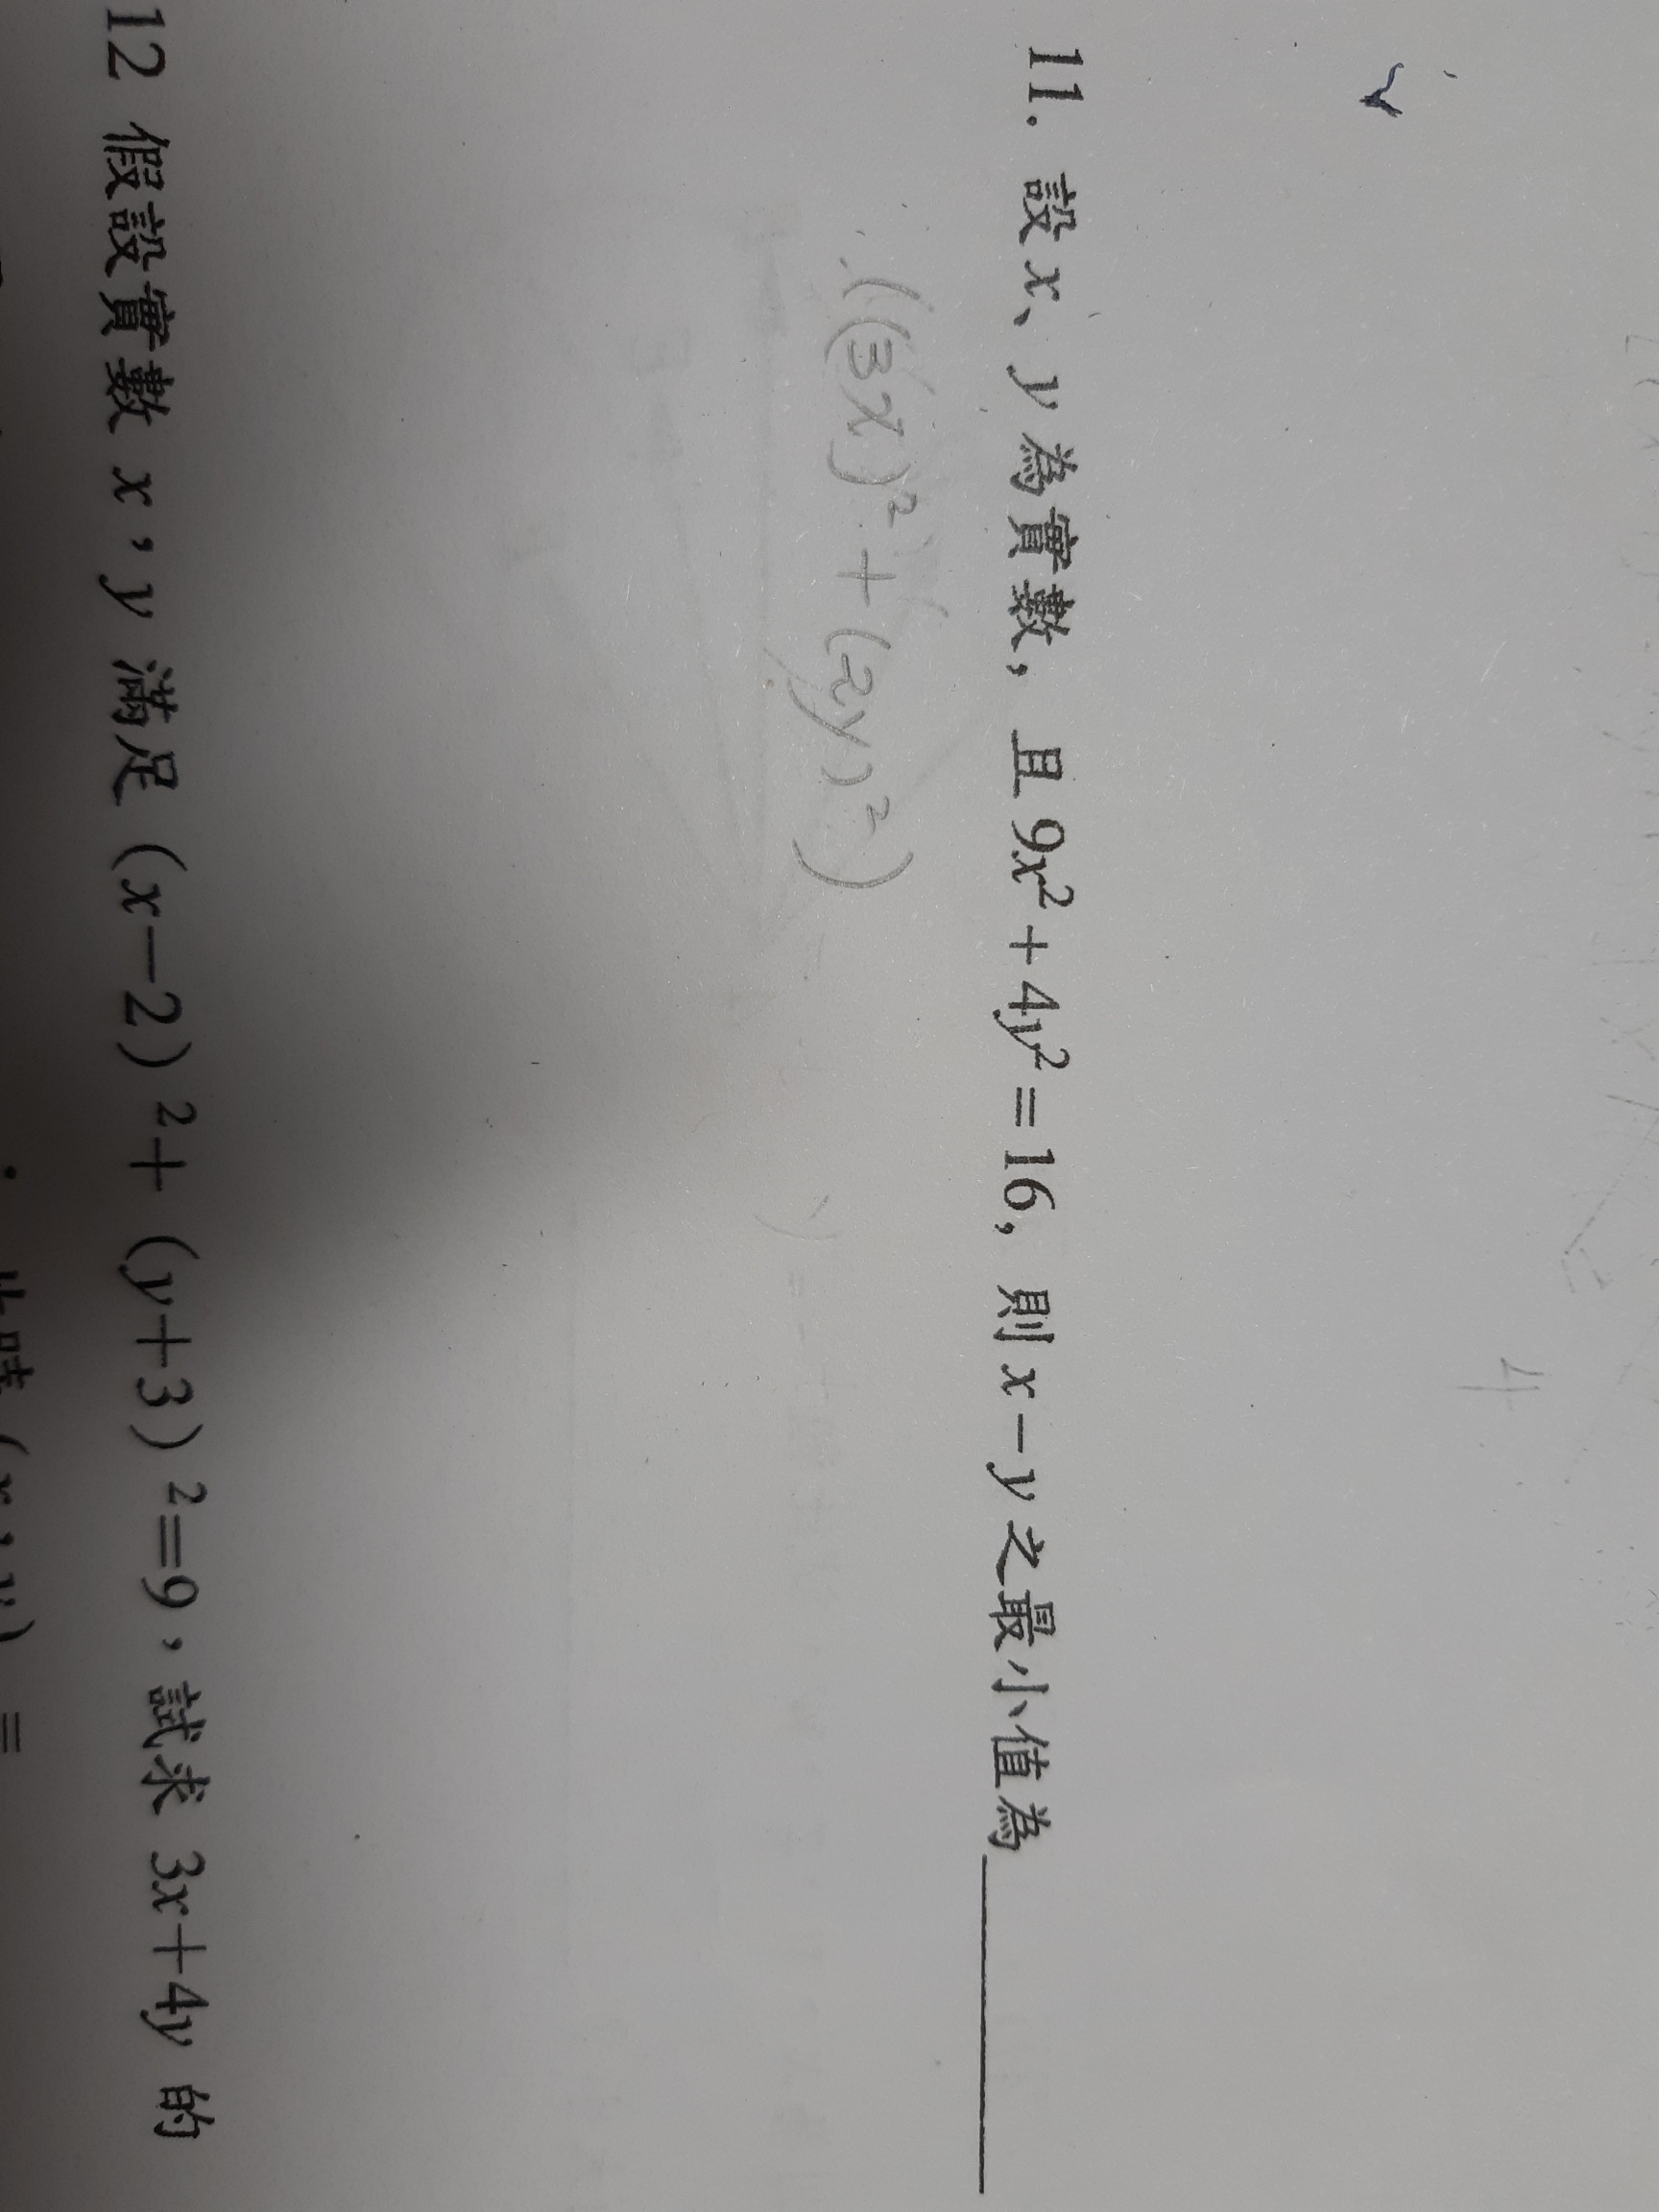 11. 設 x、y 為實數, 且 9x²+4y²=16, 則 x−y 之最小值為
((3x)²+(2y)²)
12 假設實數 x，y 滿足 (x−2)²+ (y+3)²=9，試求 3x+4y 的